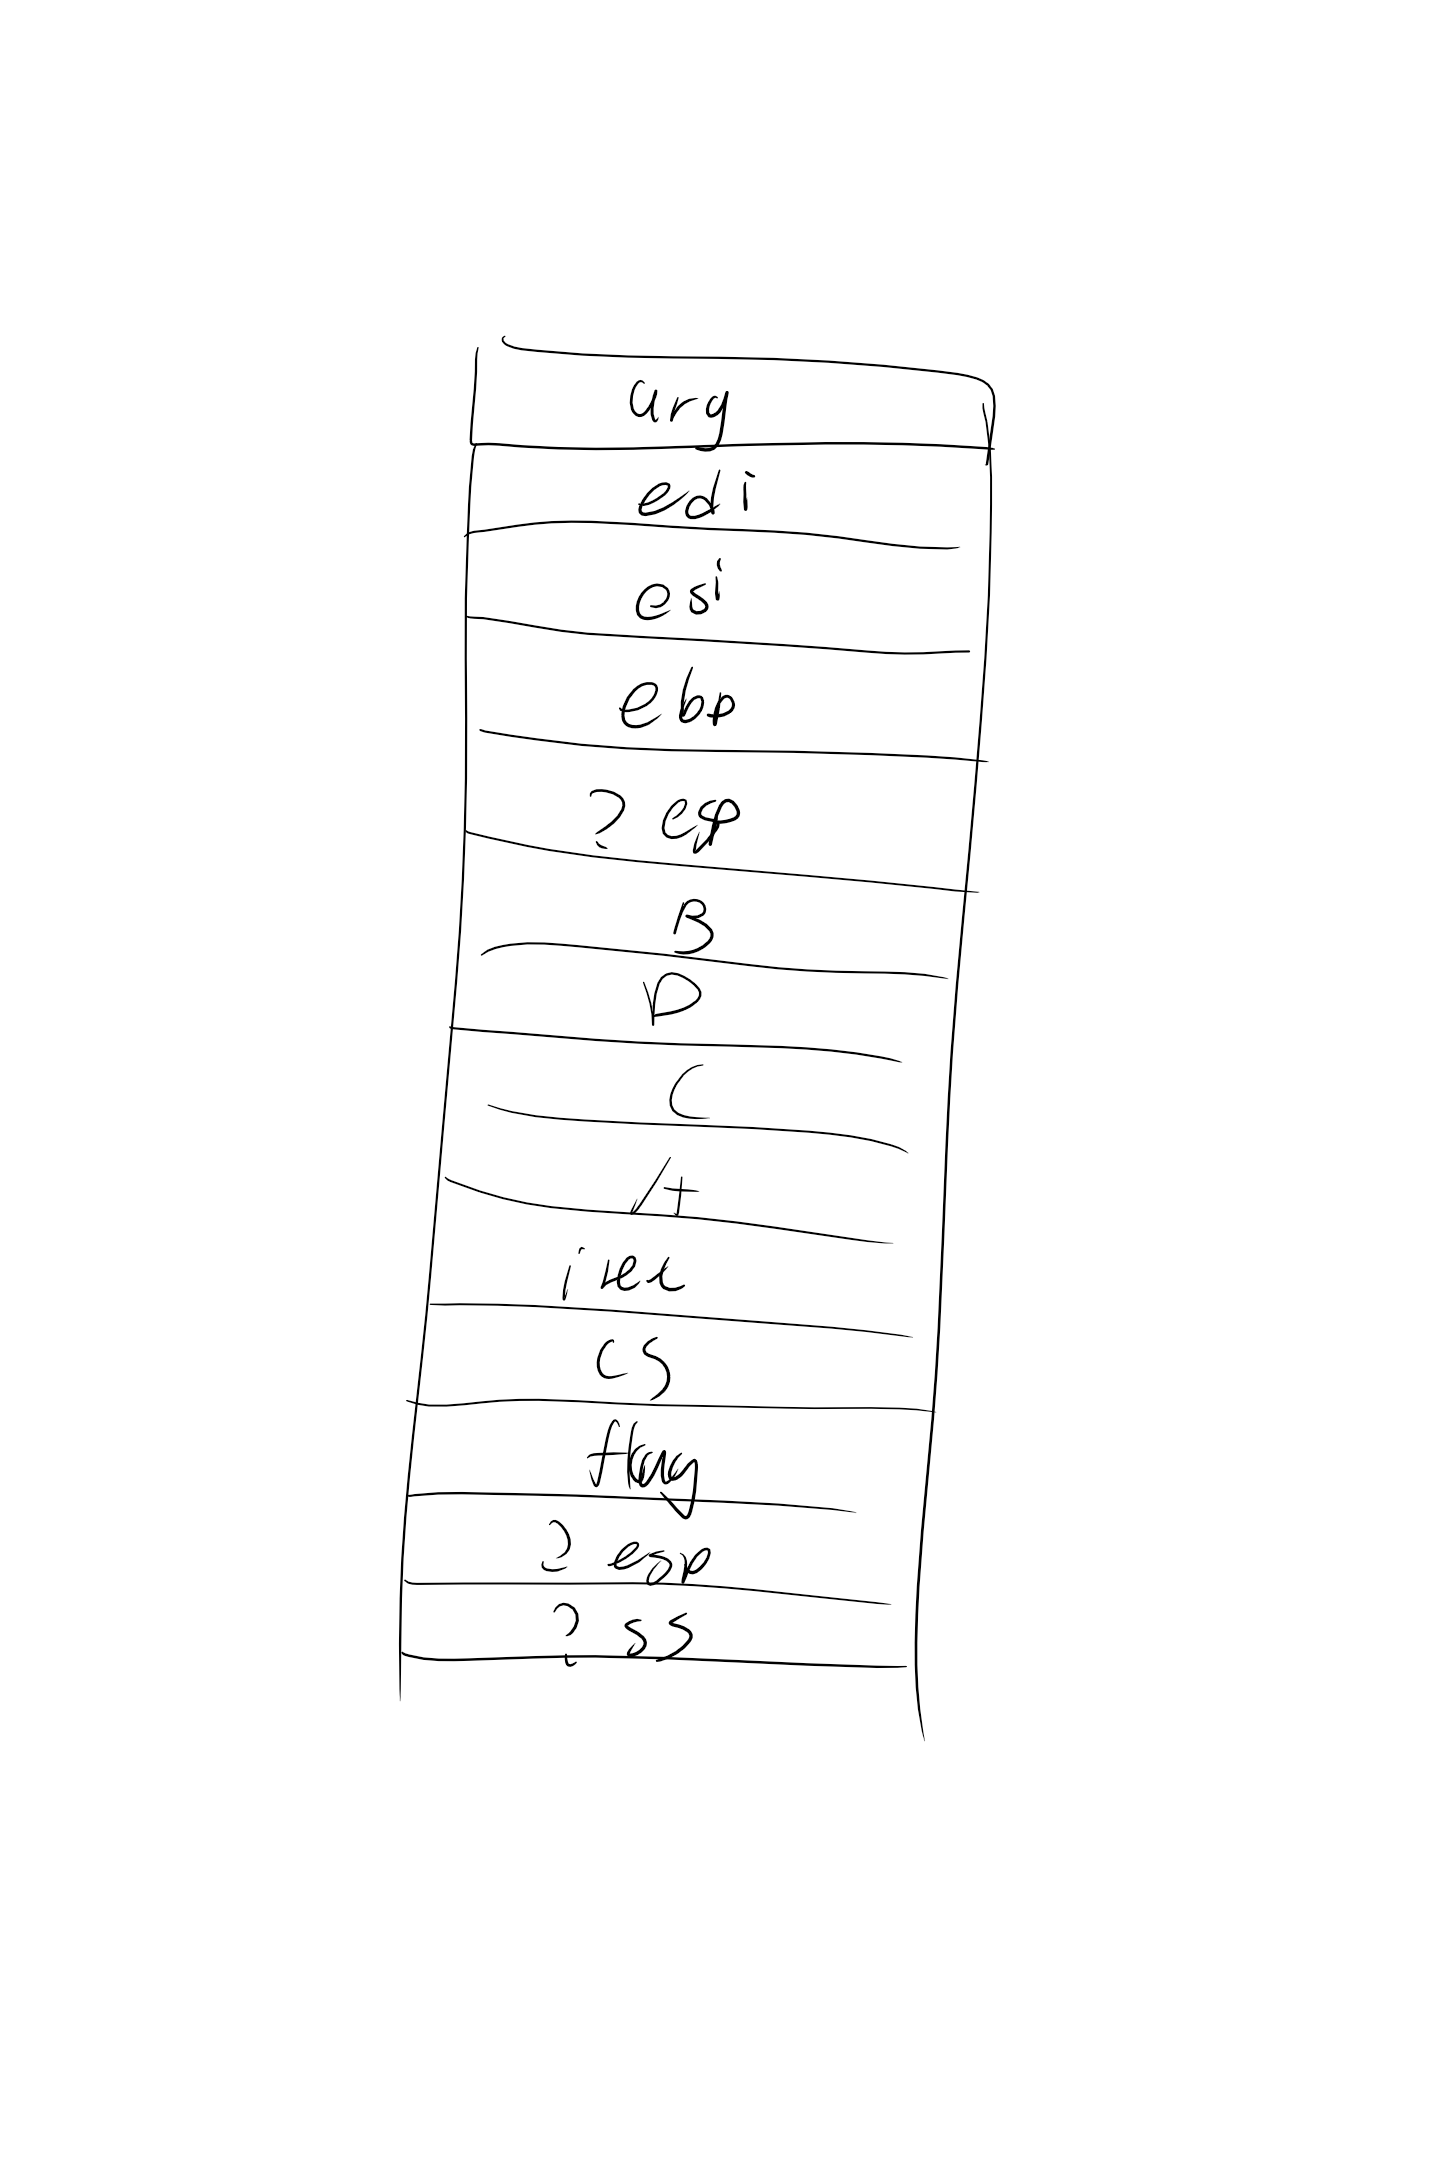 arg
edi
esi
ebp
? esp
B
D
C
A
cs
flag
? esp
? ss